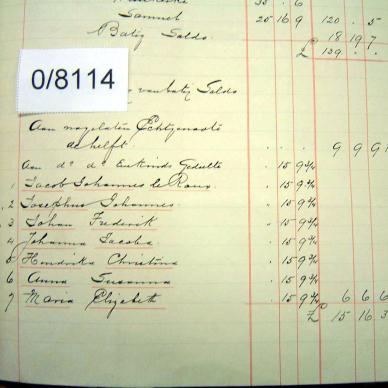 Samuel 20 16 9 120 . 5
Batig Saldo. 18 19 7
£ 139 . .
0/8114
van batig Saldo
Aan nagelaten Echtgenoote
de helft. . . 9 9 9
Aan d° d° Enkinds Gedeelte . 15 9¾
1 Jacob Johannes le Roux. . 15 9¾
2 Josephus Johannes. . 15 9¾
3 Johan Frederik . 15 9¾
4 Johanna Jacoba . 15 9¾
5 Hendrika Christina . 15 9¾
6 Anna Susanna . 15 9¾
7 Maria Elizabeth . 15 9¾ 6 6 6
£ 15 16 3